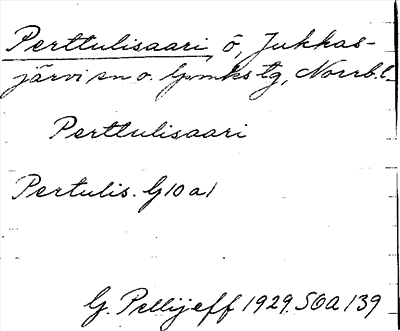 Perttulisaari, ö, Jukkas-
järvi sn o. Gvmks tg, Norrb. l.
Perttulisaari
Pertulis. G10a1
G. Pellijeff 1929. SOA 139